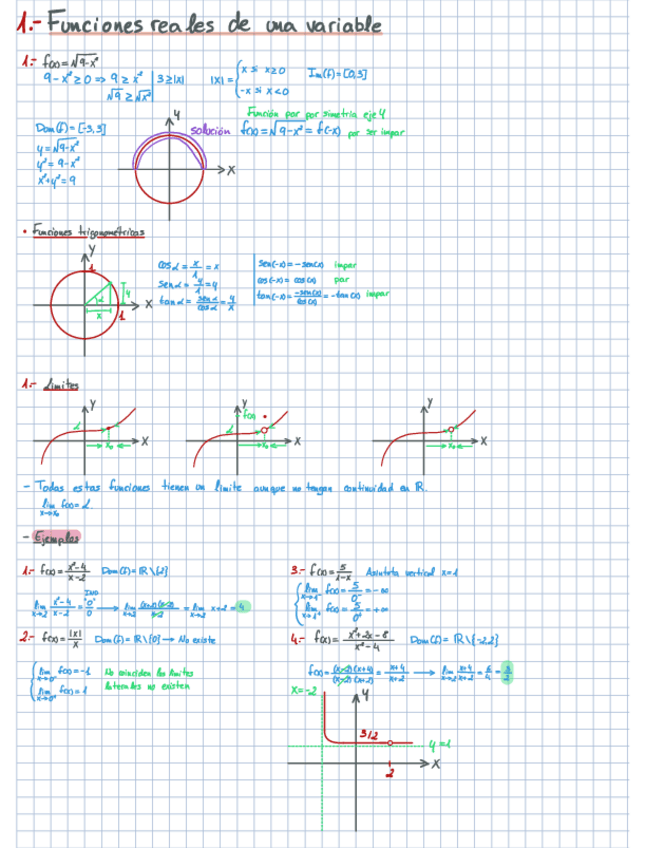 1.- Funciones reales de una variable
1.- f(x)=√9-x²
9-x²≥0 => 9≥x² | 3≥|x|
√9≥√x²
|x|= { x si x≥0
-x si x<0
Im(f)=[0,3]
Función par por simetría eje y
Dom(f)=[-3,3]
y=√9-x²
y²=9-x²
x²+y²=9
y
solución
x
f(x)=√9-x²=f(-x) por ser impar
• Funciones trigonométricas
y
1
α
y
x
x
1
cos α = x/1 = x
sen α = y/1 = y
tan α = sen α/cos α = y/x
sen(-x)=-sen(x) impar
cos(-x)=cos(x) par
tan(-x)=-sen(x)/cos(x)=-tan(x) impar
1.- Límites
y
L
x₀
x
y
f(x₀)
L
x₀
x
y
x₀
x
- Todas estas funciones tienen un límite aunque no tengan continuidad en ℝ.
lim f(x)=L
x→x₀
- Ejemplos
1.- f(x)= x²-4/x-2 Dom(f)=ℝ\{2}
IND
lim x→2 x²-4/x-2 = "0"/0 → lim x→2 (x+2)(x-2)/x-2 = lim x→2 x+2=4
2.- f(x)=|x|/x Dom(f)=ℝ\{0} → No existe
{ lim x→0⁻ f(x)=-1
lim x→0⁺ f(x)=1
No coinciden los límites
laterales no existen
3.- f(x)= 5/1-x Asíntota vertical x=1
{ lim x→1⁻ f(x)= 5/0⁻ =-∞
lim x→1⁺ f(x)= 5/0⁺ =+∞
4.- f(x)= x²+2x-8/x²-4 Dom(f)=ℝ\{-2,2}
f(x)= (x-2)(x+4)/(x-2)(x+2) = x+4/x+2 → lim x→2 x+4/x+2 = 6/4 = 3/2
x=-2
y
3/2
y=1
x
2